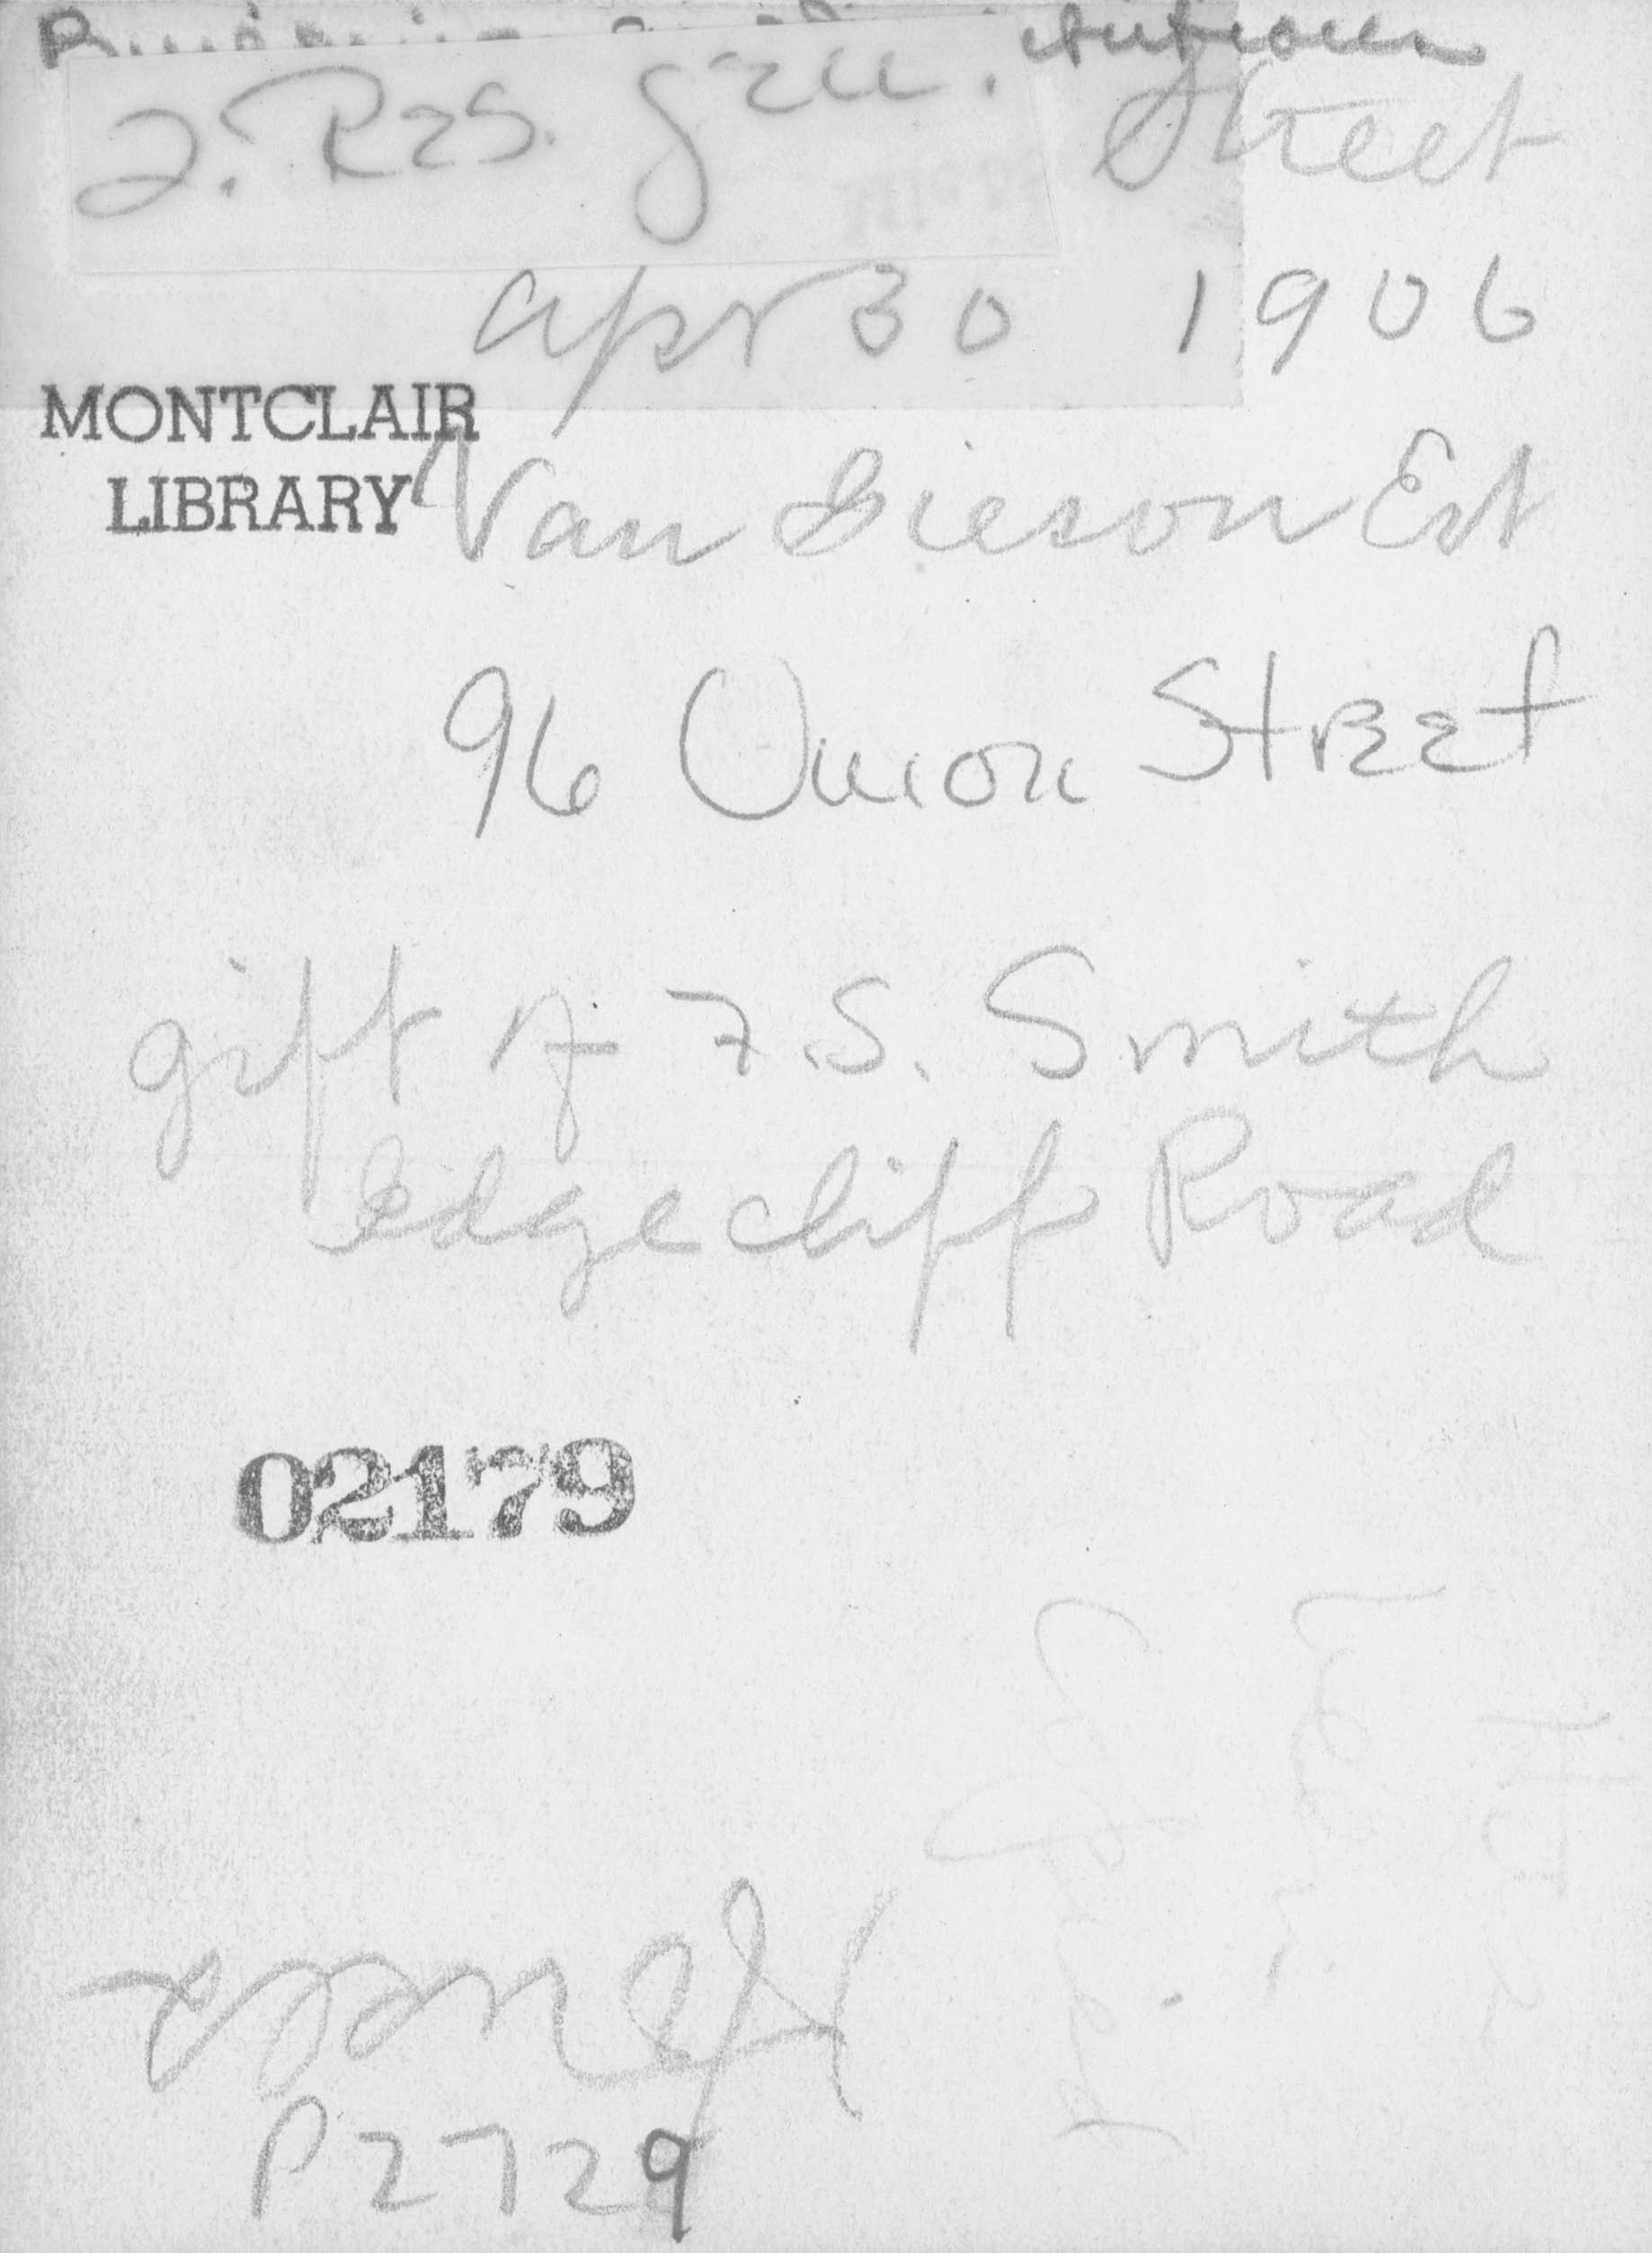 2. Res. Gen.
Street
Apr 30 1906
MONTCLAIR
LIBRARY
Van Gieson Est
96 Union Street
gift of F.S. Smith
Edgecliff Road
02179
P2729